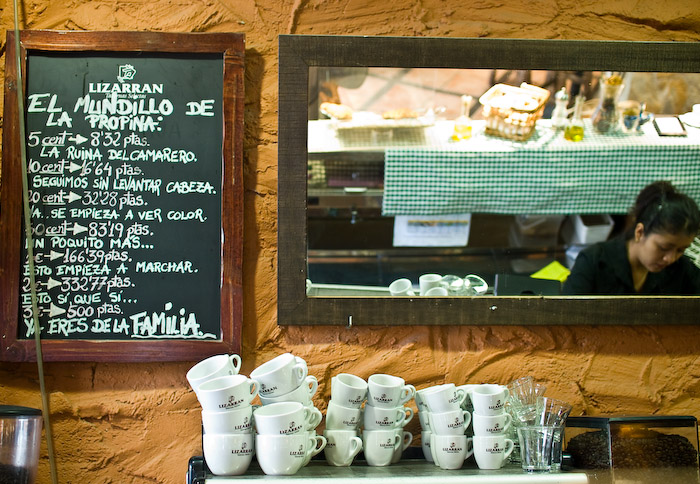 LIZARRAN
EL MUNDILLO DE
LA PROPINA:
5 cent → 8'32 ptas.
LA RUINA DEL CAMARERO.
10 cent → 16'64 ptas.
SEGUIMOS SIN LEVANTAR CABEZA.
20 cent → 32'28 ptas.
YA.. SE EMPIEZA A VER COLOR.
50 cent → 83'19 ptas.
UN POQUITO MAS...
1€ → 166'39 ptas.
ESTO EMPIEZA A MARCHAR.
2€ → 332'77 ptas.
ESTO SÍ QUE SÍ...
3€ → 500 ptas.
YA ERES DE LA FAMILIA.
LIZARRAN
LIZARRAN
LIZARRAN
LIZARRAN
LIZARRAN
LIZARRAN